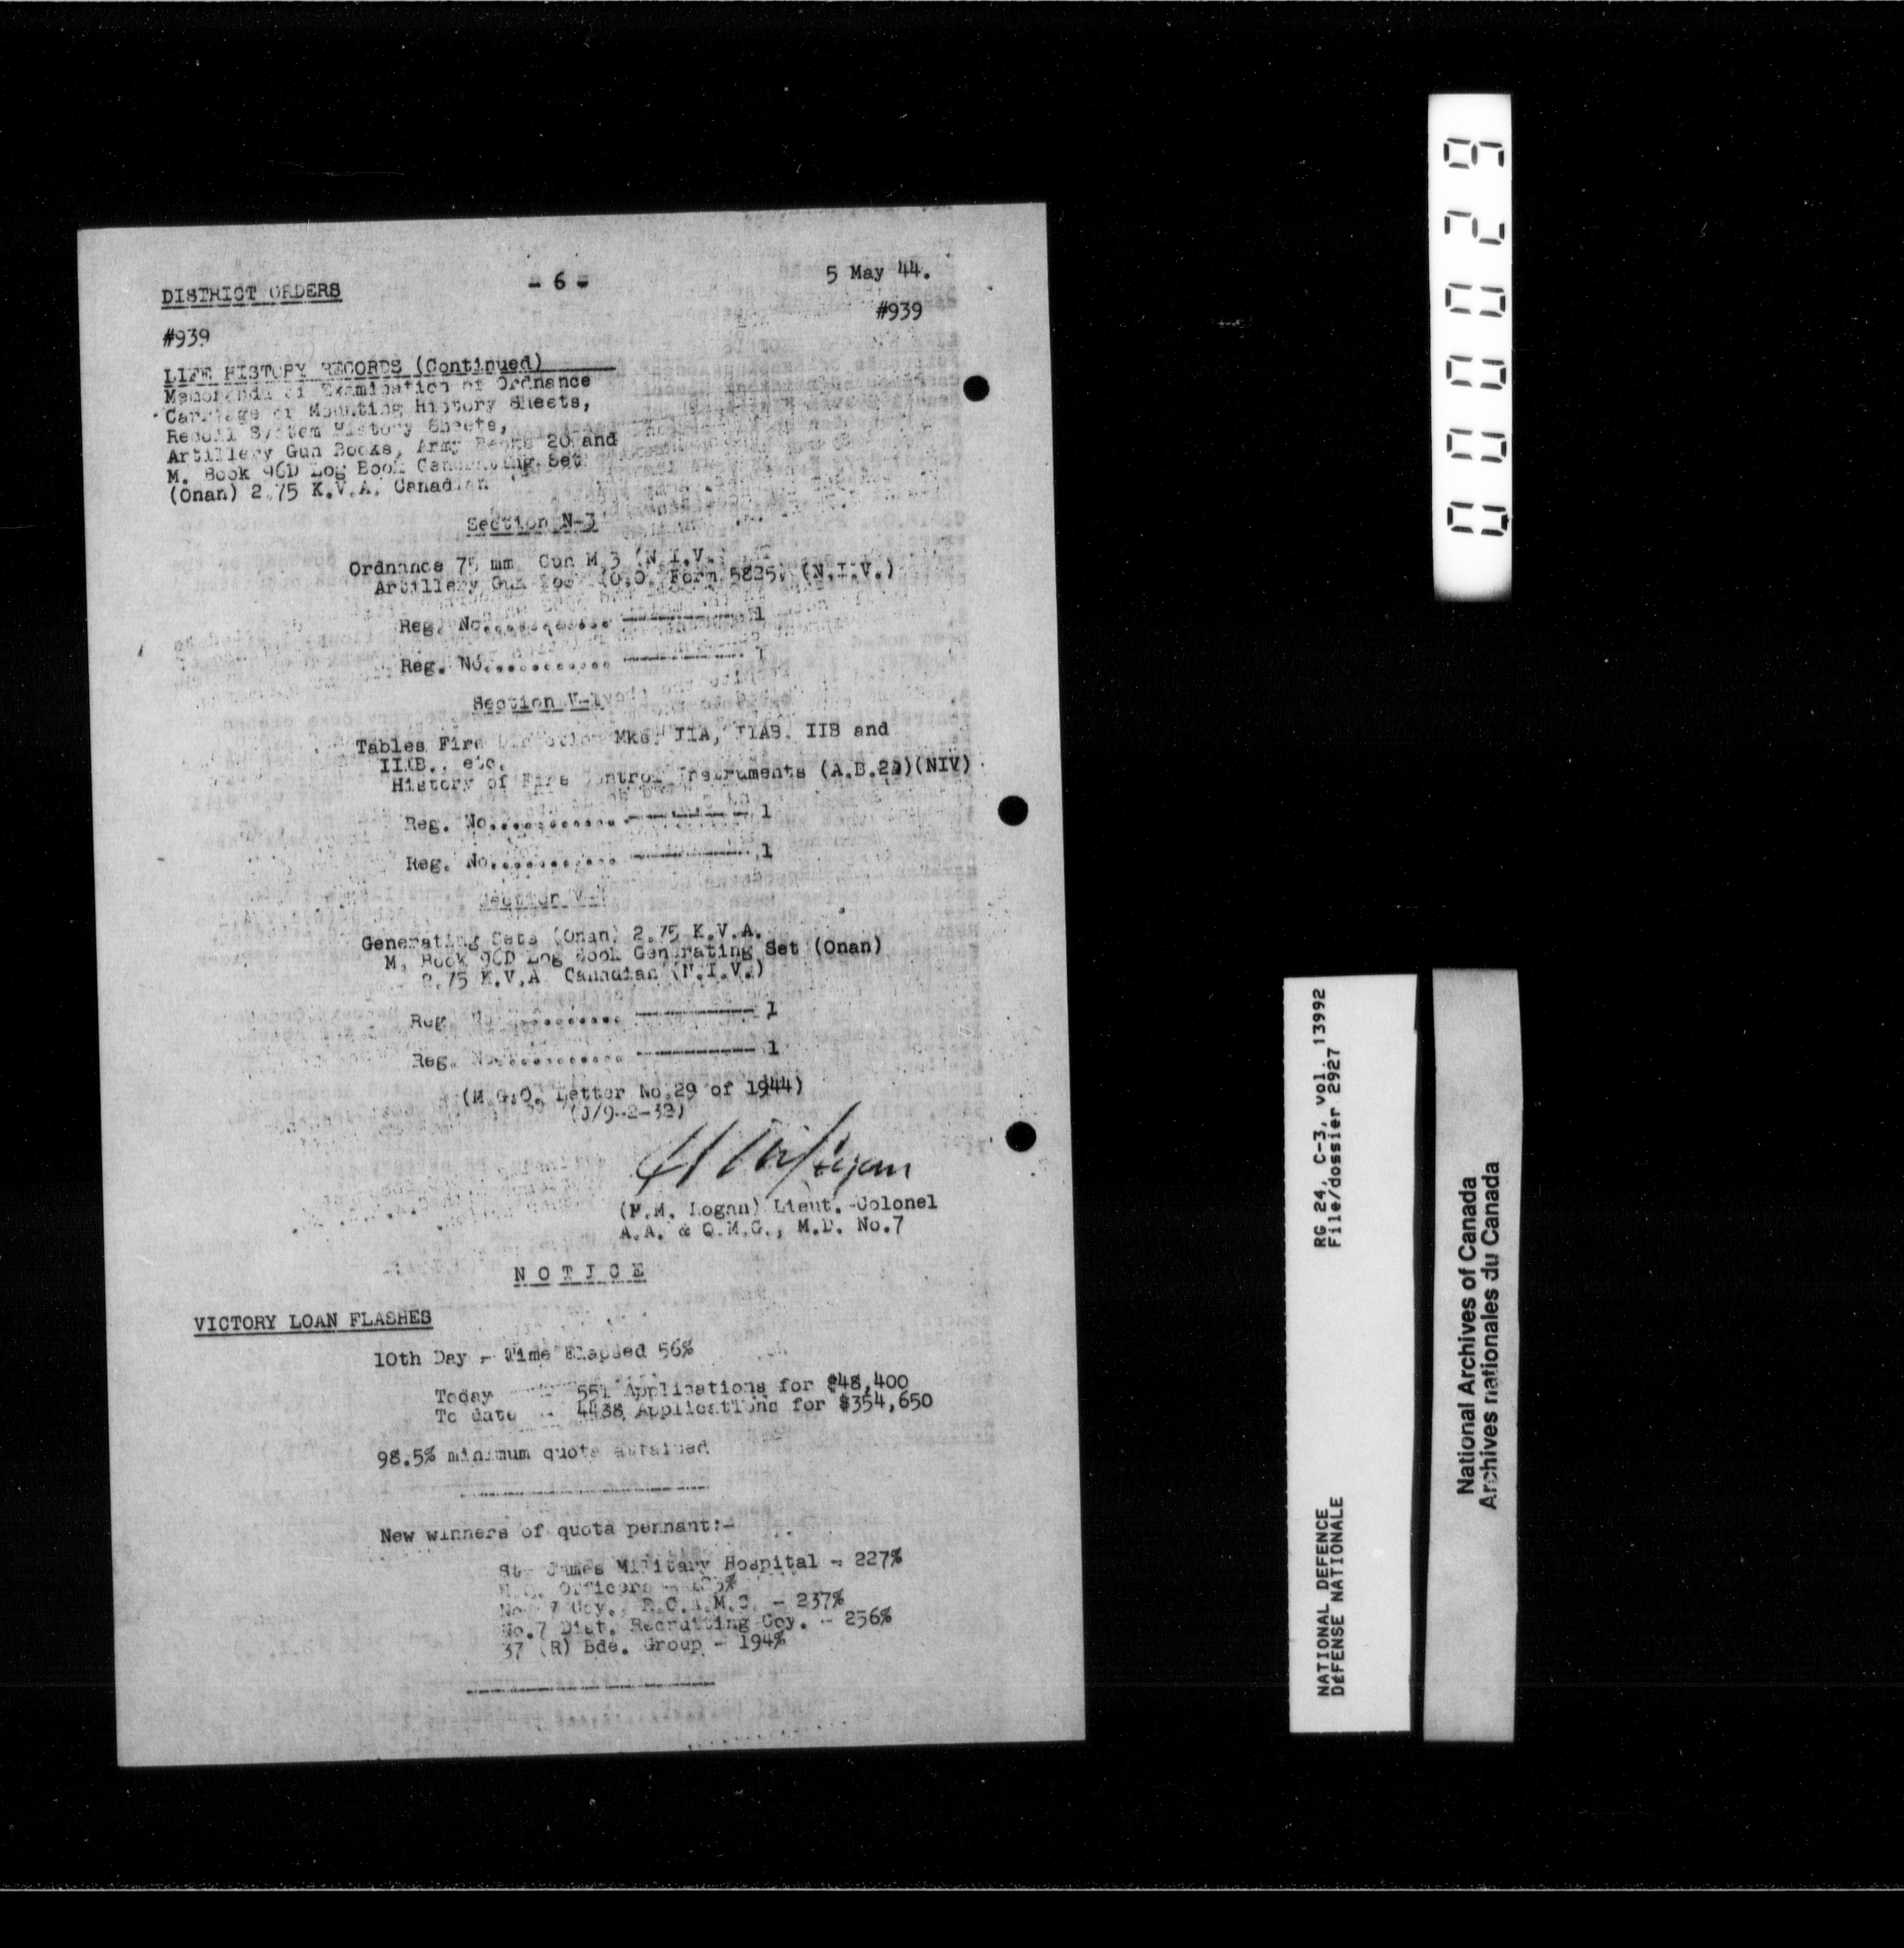 DISTRICT ORDERS - 6 - 5 May 44.
#939
#939
LIFE HISTORY RECORDS (Continued)
Memoranda of Examination of Ordnance
Carriage or Mounting History Sheets,
Recoil System History Sheets,
Artillery Gun Books, Army Books 20 and
M. Book 96D Log Book Generating Set
(Onan) 2.75 K.V.A. Canadian
Section N-3
Ordnance 75 mm Gun M 3 (N.I.V.)
Artillery Gun Book (O.O. Form 5825) (N.I.V.)
Reg. No............ ---------- 1
Reg. No............ ---------- 1
Section V-1
Tables Fire Mks. IIA, IIAB. IIB and
etc.
History of Fire Control Instruments (A.B.20)(NIV)
Reg. No............ ---------- 1
Reg. No............ ---------- 1
Section
Generating Sets (Onan) 2.75 K.V.A.
M. Book 96D Log Book Generating Set (Onan)
2.75 K.V.A. Canadian (N.I.V.)
Reg. No............ ---------- 1
Reg. No............ ---------- 1
(M.G.O. Letter No.29 of 1944)
Logan
Logan) Lieut.-Colonel
A.A. & Q.M.G., M.D. No.7
N O T I C E
VICTORY LOAN FLASHES
10th Day - Time Elapsed 56%
Today - 551 Applications for $48,400
To date - 4438 Applications for $354,650
98.5% minimum quota attained
New winners of quota pennant:-
St. James Military Hospital - 227%
Officers
No. 7 Coy., R.C.A.M.C. - 237%
No.7 Dist. Recruiting Coy. - 256%
37 (R) Bde. Group - 194%
000029
RG 24, C-3, vol. 13992
File/dossier 2927
NATIONAL DEFENCE
DéFENSE NATIONALE
National Archives of Canada
Archives nationales du Canada